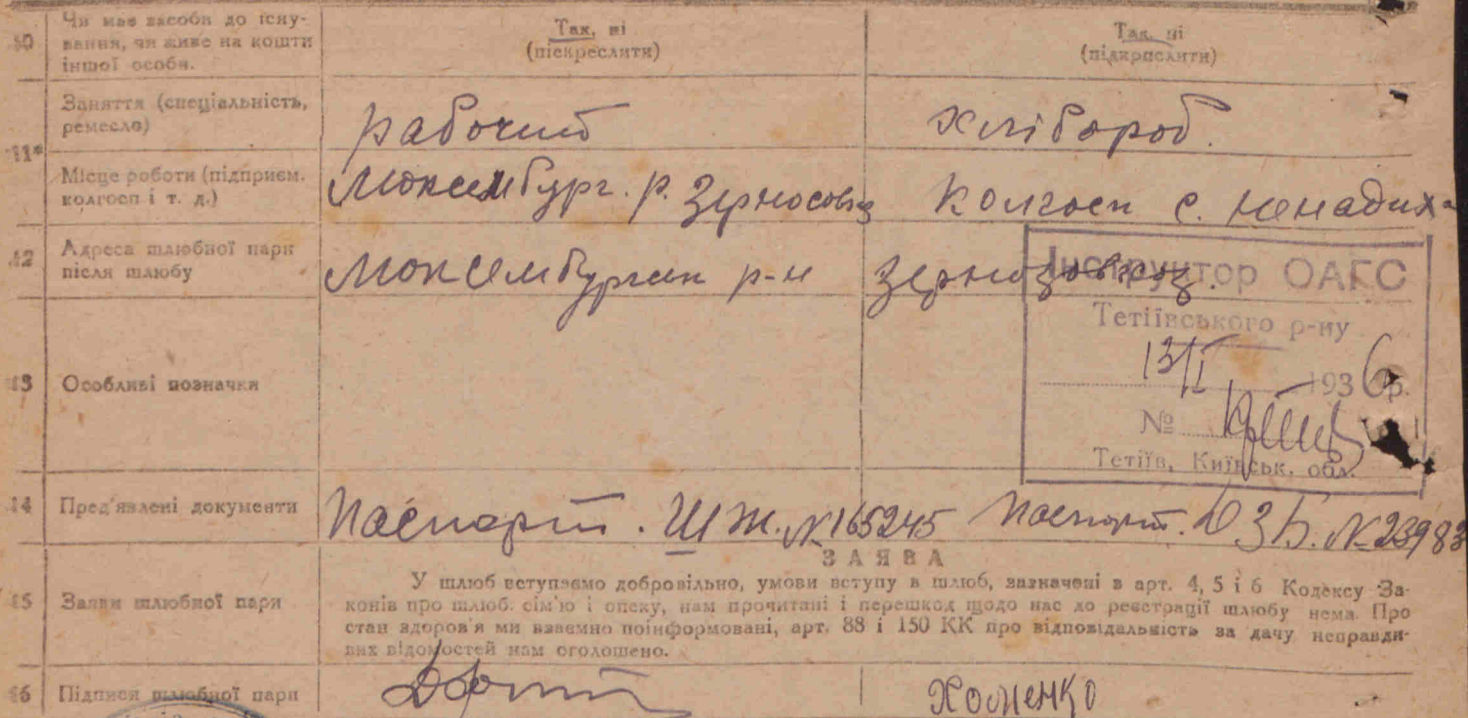 10 Чи має засоби до існу-
вання, чи живе на кошти
іншої особи.
Так, ні
(піскреслити)
Так, ні
(підкреслити)
11*
Заняття (спеціальність,
ремесло)
рабочий
хлібороб.
Місце роботи (підприєм.
колгосп і т. д.)
р. Зерносовхоз
Колгосп с.
12 Адреса шлюбної пари
після шлюбу
р-н
Інструктор ОАГС
Тетіївського р-ну
13/I 1936 р.
№
Тетіїв, Київськ. обл.
13 Особливі позначки
14 Пред'явлені документи
Паспорт. ШЖ. №165245
Паспорт. №23983
ЗАЯВА
15 Заяви шлюбної пари
У шлюб вступаємо добровільно, умови вступу в шлюб, зазначені в арт. 4, 5 і 6 Кодексу За-
конів про шлюб. сім'ю і опеку, нам прочитані і перешкод щодо нас до реєстрації шлюбу нема. Про
стан здоров'я ми взаємно поінформовані, арт. 88 і 150 КК про відповідальність за дачу неправди-
вих відомостей нам оголошено.
16 Підписи шлюбної пари
Хоменко